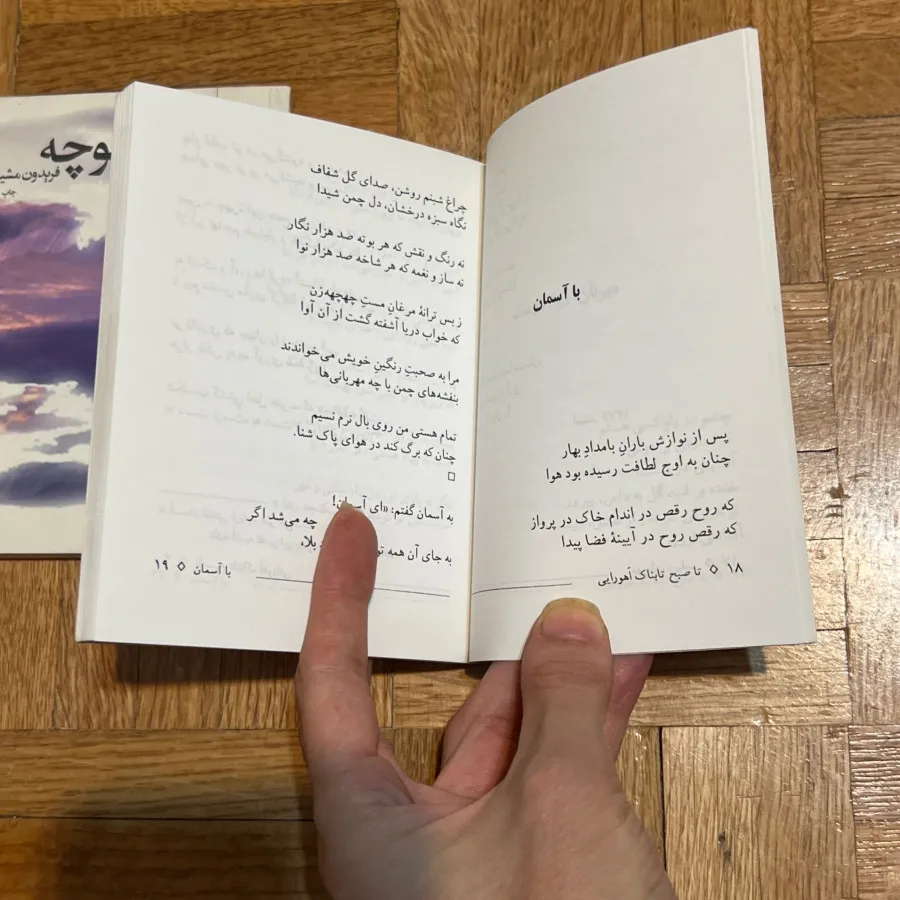 با آسمان
پس از نوازش بارانِ بامدادِ بهار
چنان به اوج لطافت رسیده بود هوا
که روح رقص در اندام خاک در پرواز
که رقص روح در آیینهٔ فضا پیدا
۱۸ ◇ تا صبح تابناک اهورایی
چراغ شبنم روشن، صدای گل شفاف
نگاه سبزه درخشان، دل چمن شیدا
نه رنگ و نقش که هر بوته صد هزار نگار
نه ساز و نغمه که هر شاخه صد هزار نوا
ز بس ترانهٔ مرغانِ مستِ چهچهه‌زن
که خواب دریا آشفته گشت از آن آوا
مرا به صحبتِ رنگینِ خویش می‌خواندند
بنفشه‌های چمن با چه مهربانی‌ها
تمام هستی من روی بال نرم نسیم
چنان که برگ کند در هوای پاک شنا.
□
به آسمان گفتم: «ای آسمان!
چه می‌شد اگر
به جای آن همه بلا،
با آسمان ◇ ۱۹
وچه
فریدون مشی
چاپ